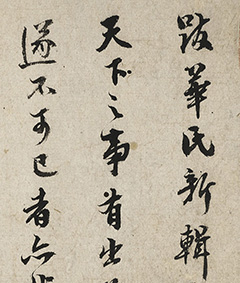 跋華氏新輯
天下之事有出
遂不可已者亦